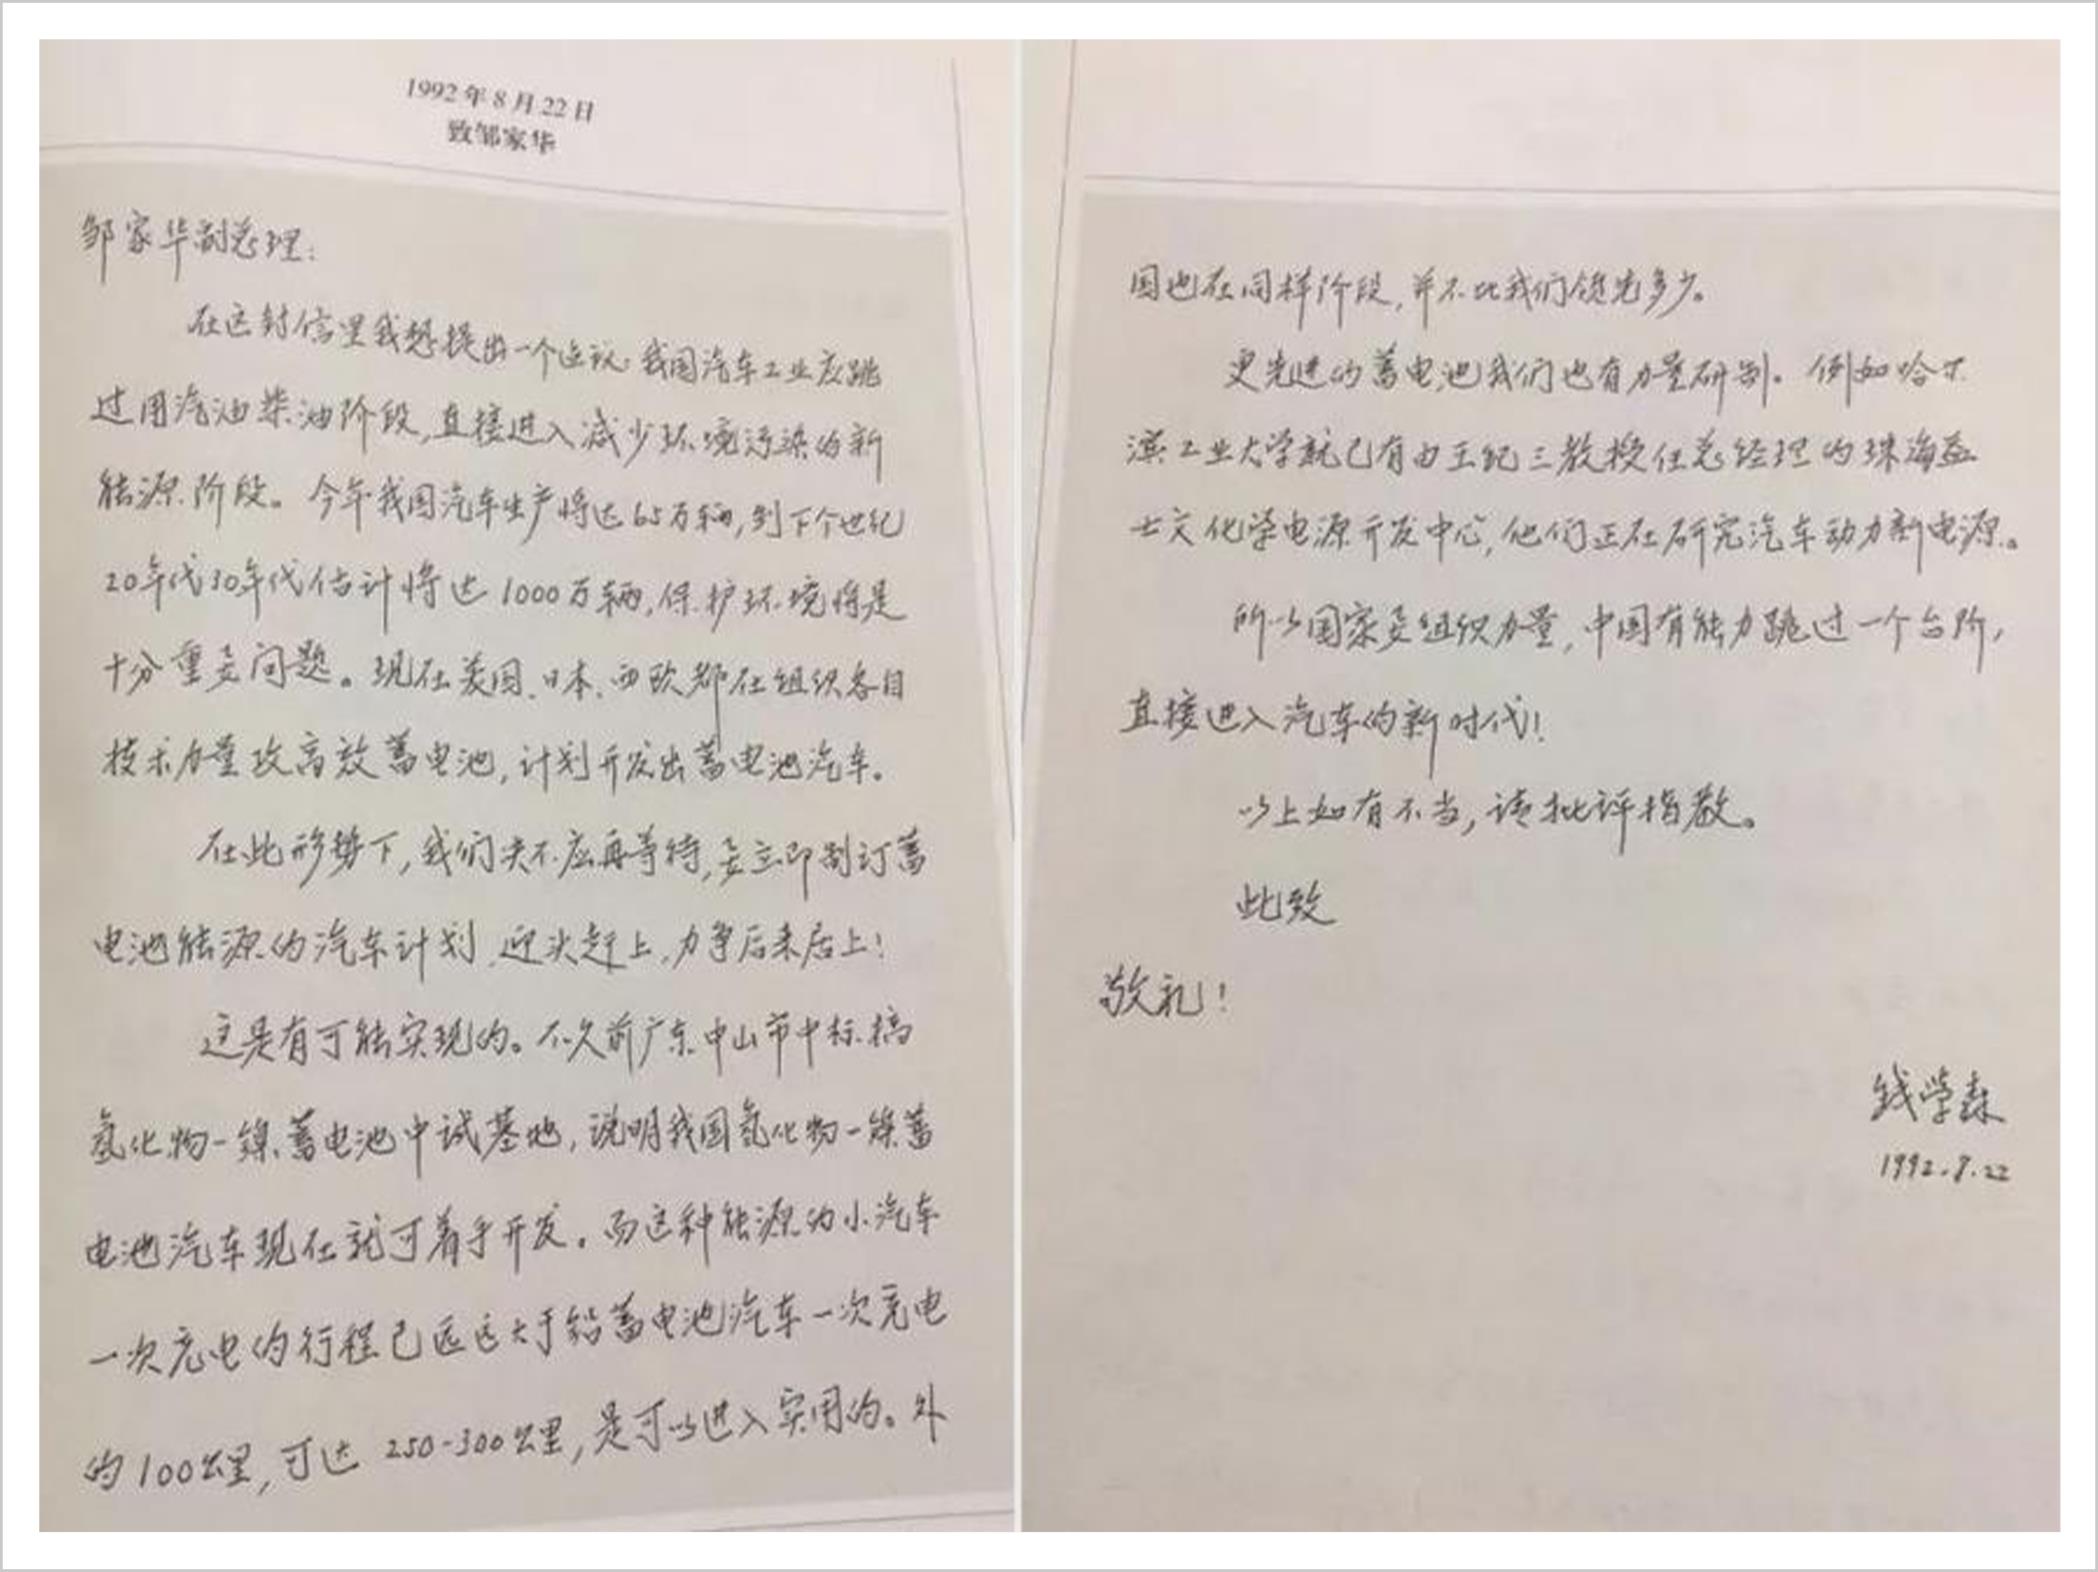 1992年8月22日
致邹家华
邹家华副总理:
在这封信里我想提出一个建议:我国汽车工业应跳
过用汽油柴油阶段,直接进入减少环境污染的新
能源阶段。今年我国汽车生产将达65万辆,到下个世纪
20年代30年代估计将达1000万辆,保护环境将是
十分重要问题。现在美国、日本、西欧都在组织各自
技术力量攻高效蓄电池,计划开发出蓄电池汽车。
在此形势下,我们决不应再等待,要立即制订蓄
电池能源的汽车计划,迎头赶上,力争后来居上!
这是有可能实现的。不久前广东中山市中标搞
氢化物—镍蓄电池中试基地,说明我国氢化物—镍蓄
电池汽车现在就可着手开发。而这种能源的小汽车
一次充电的行程已远远大于铅蓄电池汽车一次充电
的100公里,可达250-300公里,是可以进入实用的。外
国也在同样阶段,并不比我们领先多少。
更先进的蓄电池我们也有力量研制。例如哈尔
滨工业大学就已有由王纪三教授任总经理的珠海益
士文化学电源开发中心,他们正在研究汽车动力新电源。
所以国家要组织力量,中国有能力跳过一个台阶,
直接进入汽车的新时代!
以上如有不当,请批评指教。
此致
敬礼!
钱学森
1992.8.22